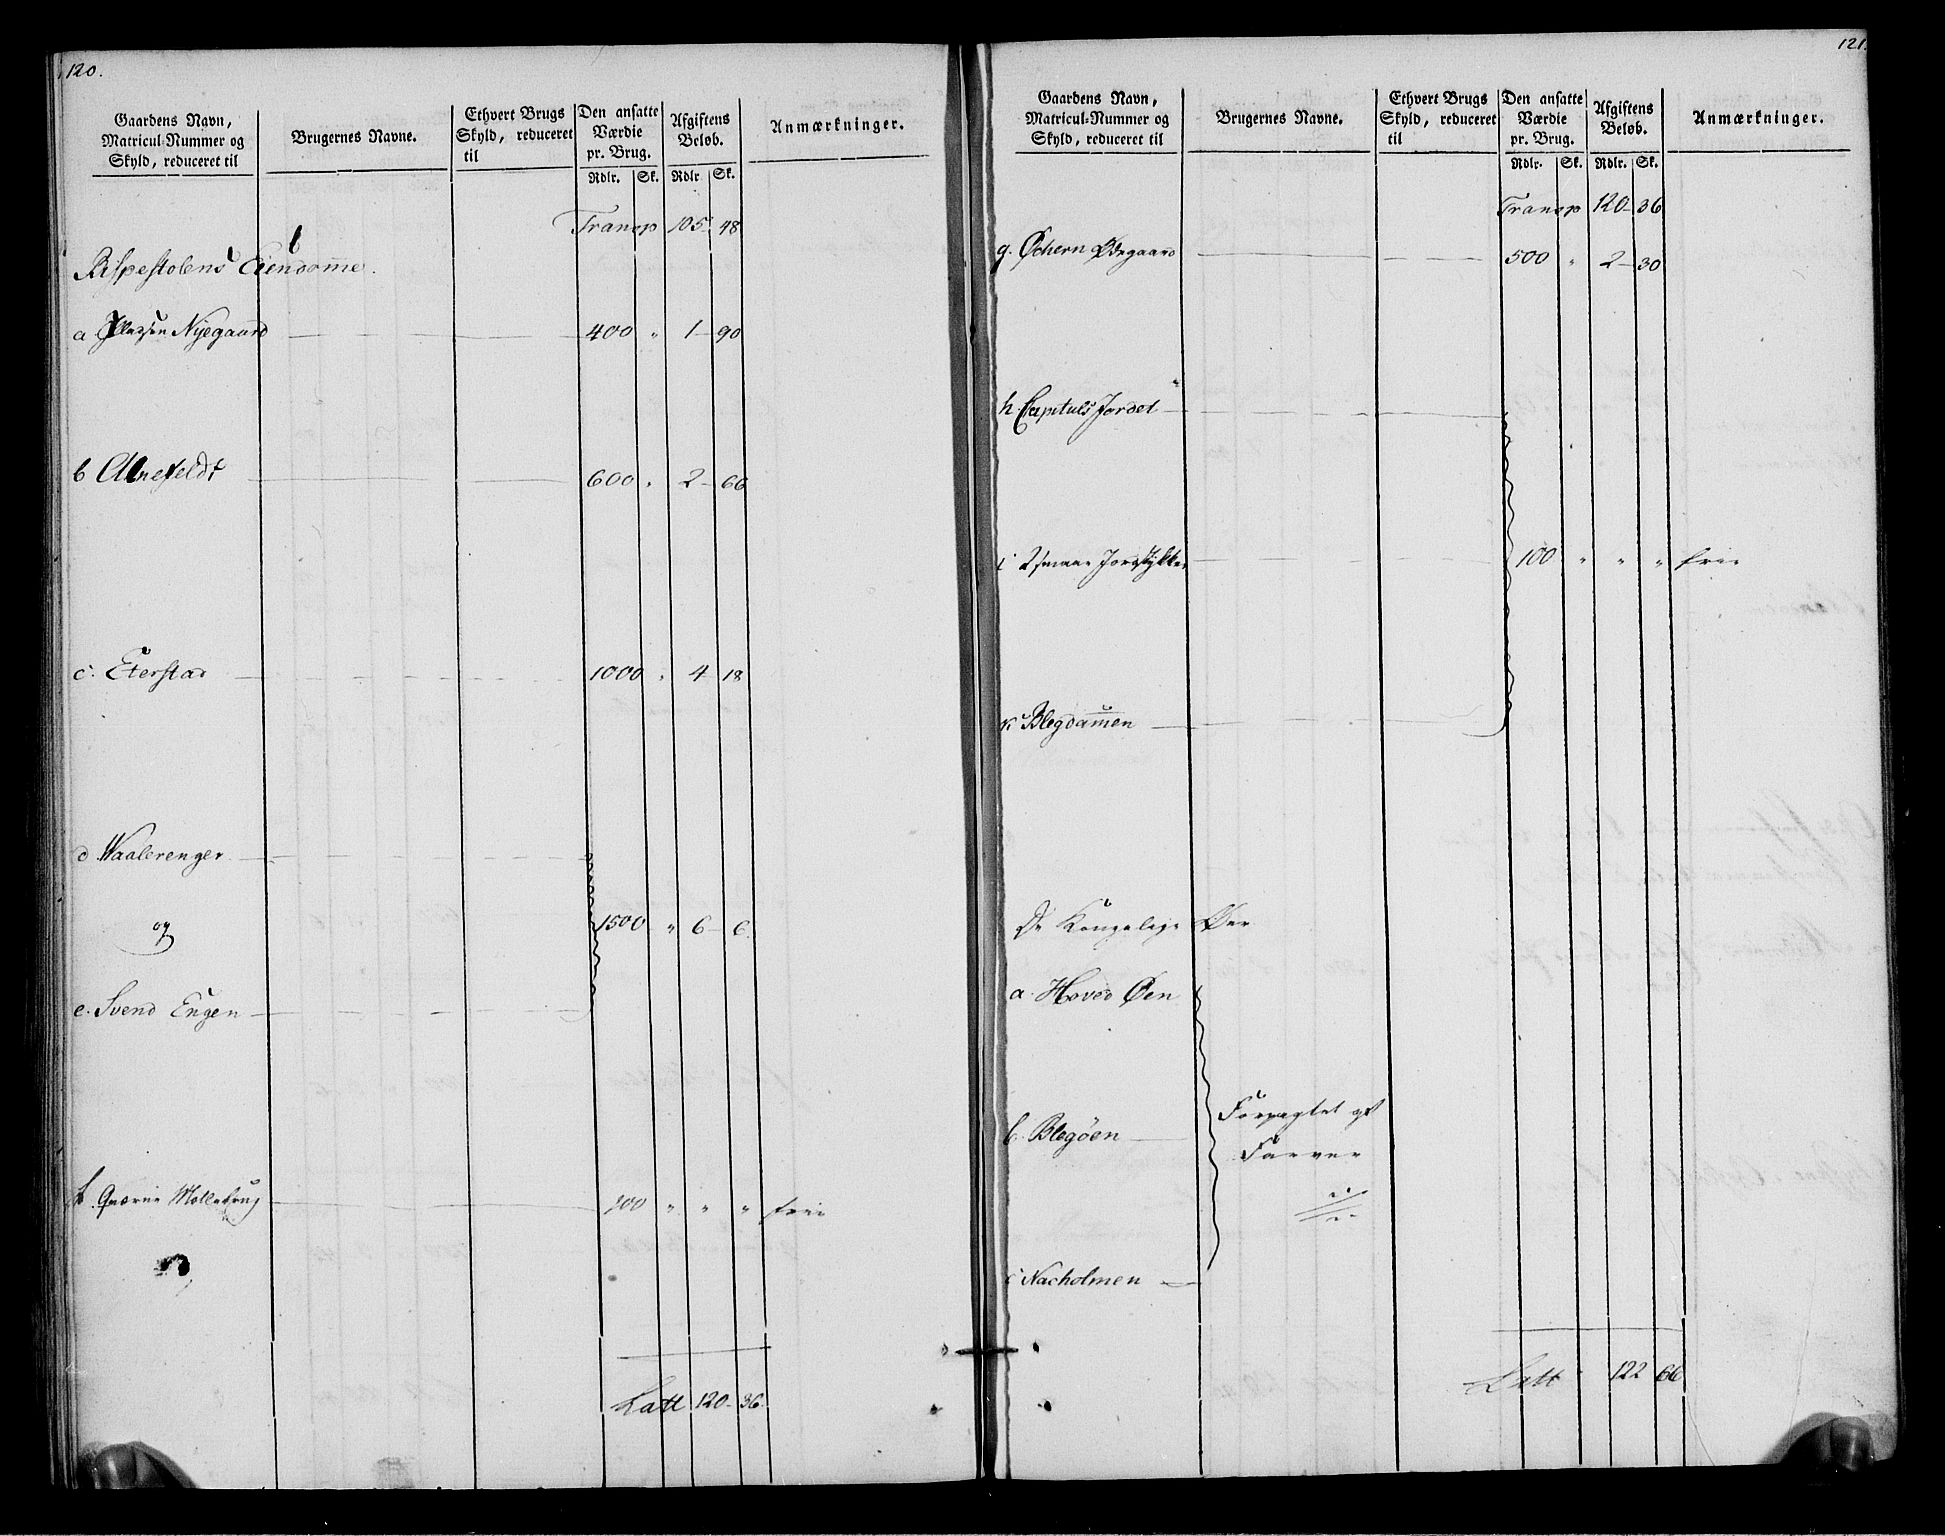 120.
Gaardens Navn,
Matricul-Nummer og
Skyld, reduceret til
Brugernes Navne.
Ethvert Brugs
Skyld, reduceret
til
Den ansatte
Værdie
pr. Brug.
Rdlr. Sk.
Afgiftens
Beløb.
Rdlr Sk.
Anmærkninger.
Transp 105 48
Bispestolens Eiendomme.
a Nyegaard 400 " 1 - 90
b Alnefeldt 600 " 2 - 66
c. Eterstad 1000 " 4 18
d Waalerenger
og 1500 " 6 - 6.
e. Svend Engen
f. Qværne Mollebrug " " " frie
Latt 120 - 36.
121.
Gaardens Navn,
Matricul-Nummer og
Skyld, reduceret til
Brugernes Navne.
Ethvert Brugs
Skyld, reduceret
til
Den ansatte
Værdie
pr. Brug.
Rdlr. Sk.
Afgiftens
Beløb.
Rdlr. Sk.
Anmærkninger.
Transp 120 - 36
g. Øchern Ødegaard 500 " 2 - 30
h. Capituls Jordet
i 2 smaae Jordstykker 100 " " " frie
k Blegdammen
De Kongelige Øer
a. Hoved Øen
b. Blegöen
Forpagtet af
Farver
c Nacholmen
Latt 122 66